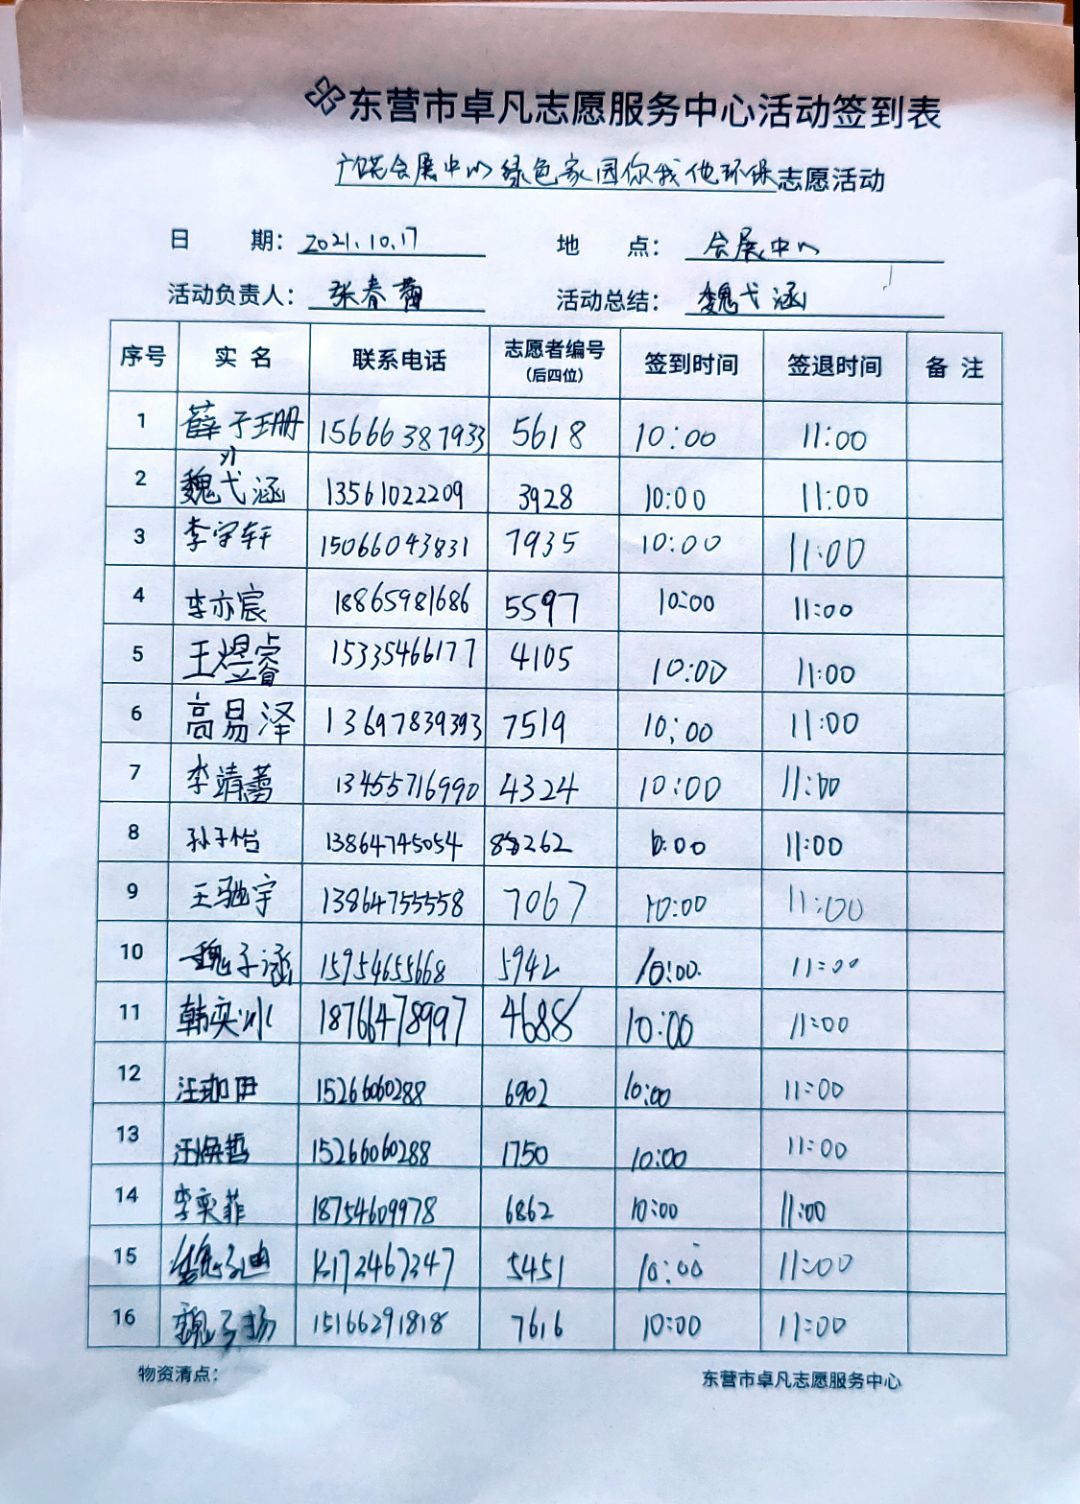 东营市卓凡志愿服务中心活动签到表
广饶会展中心绿色家园你我他环保志愿活动
日 期： 2021.10.17 地 点： 会展中心
活动负责人： 张春 活动总结： 魏弋涵
序号 实名 联系电话 志愿者编号（后四位） 签到时间 签退时间 备注
1 薛子珊 15666387933 5618 10:00 11:00
2 魏弋涵 13561022209 3928 10:00 11:00
3 李宇轩 15066043831 7935 10:00 11:00
4 李亦宸 18865981686 5597 10:00 11:00
5 王煜睿 15335466177 4105 10:00 11:00
6 高易泽 13697839393 7519 10:00 11:00
7 李靖蕾 13455716990 4324 10:00 11:00
8 孙子怡 13864745054 8262 10:00 11:00
9 王驰宇 13864755558 7067 10:00 11:00
10 魏子涵 15954655668 5942 10:00 11:00
11 韩奕冰 18766478997 4688 10:00 11:00
12 汪珈田 15266060288 6902 10:00 11:00
13 汪焕哲 15266060288 1750 10:00 11:00
14 李奕菲 18754609978 6862 10:00 11:00
15 魏子迪 5451 10:00 11:00
16 魏子扬 15166291818 7616 10:00 11:00
物资清点： 东营市卓凡志愿服务中心